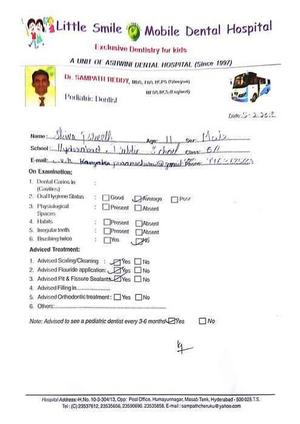 Little Smile Mobile Dental Hospital
Exclusive Dentistry for kids
A UNIT OF ASHWINI DENTAL HOSPITAL (Since 1997)
Dr. SAMPATH REDDY,
Pediatric Dentist
Date:
Name: Age: 11 Sex: Male
School: Hyderabad Public School Class:
E-mail:
On Examination:
1. Dental Caries in
(Cavities)
2. Oral Hygiene Status Good Average Poor
3. Physiological Present Absent
Spaces
4. Habits Present Absent
5. Irregular teeth Present Absent
6. Brushing twice Yes No
Adviced Treatment:
1. Advised Scaling/Cleaning Yes No
2. Advised Flouride application Yes No
3. Advised Pit & Fissure Sealants Yes No
4. Advised Filling in
5. Advised Orthodontic treatment: Yes No
6. Others:
Note: Advised to see a pediatric dentist every 3-6 months Yes No
Hospital Address-H.No. 10-3-304/13, Opp: Post Office, Humayunnagar, Masab Tank, Hyderabad - 500 028.T.S.
Tel: (C) 23537612, 23535656, 23590690, 23535858, E-mail : sampathcheruku@yahoo.com